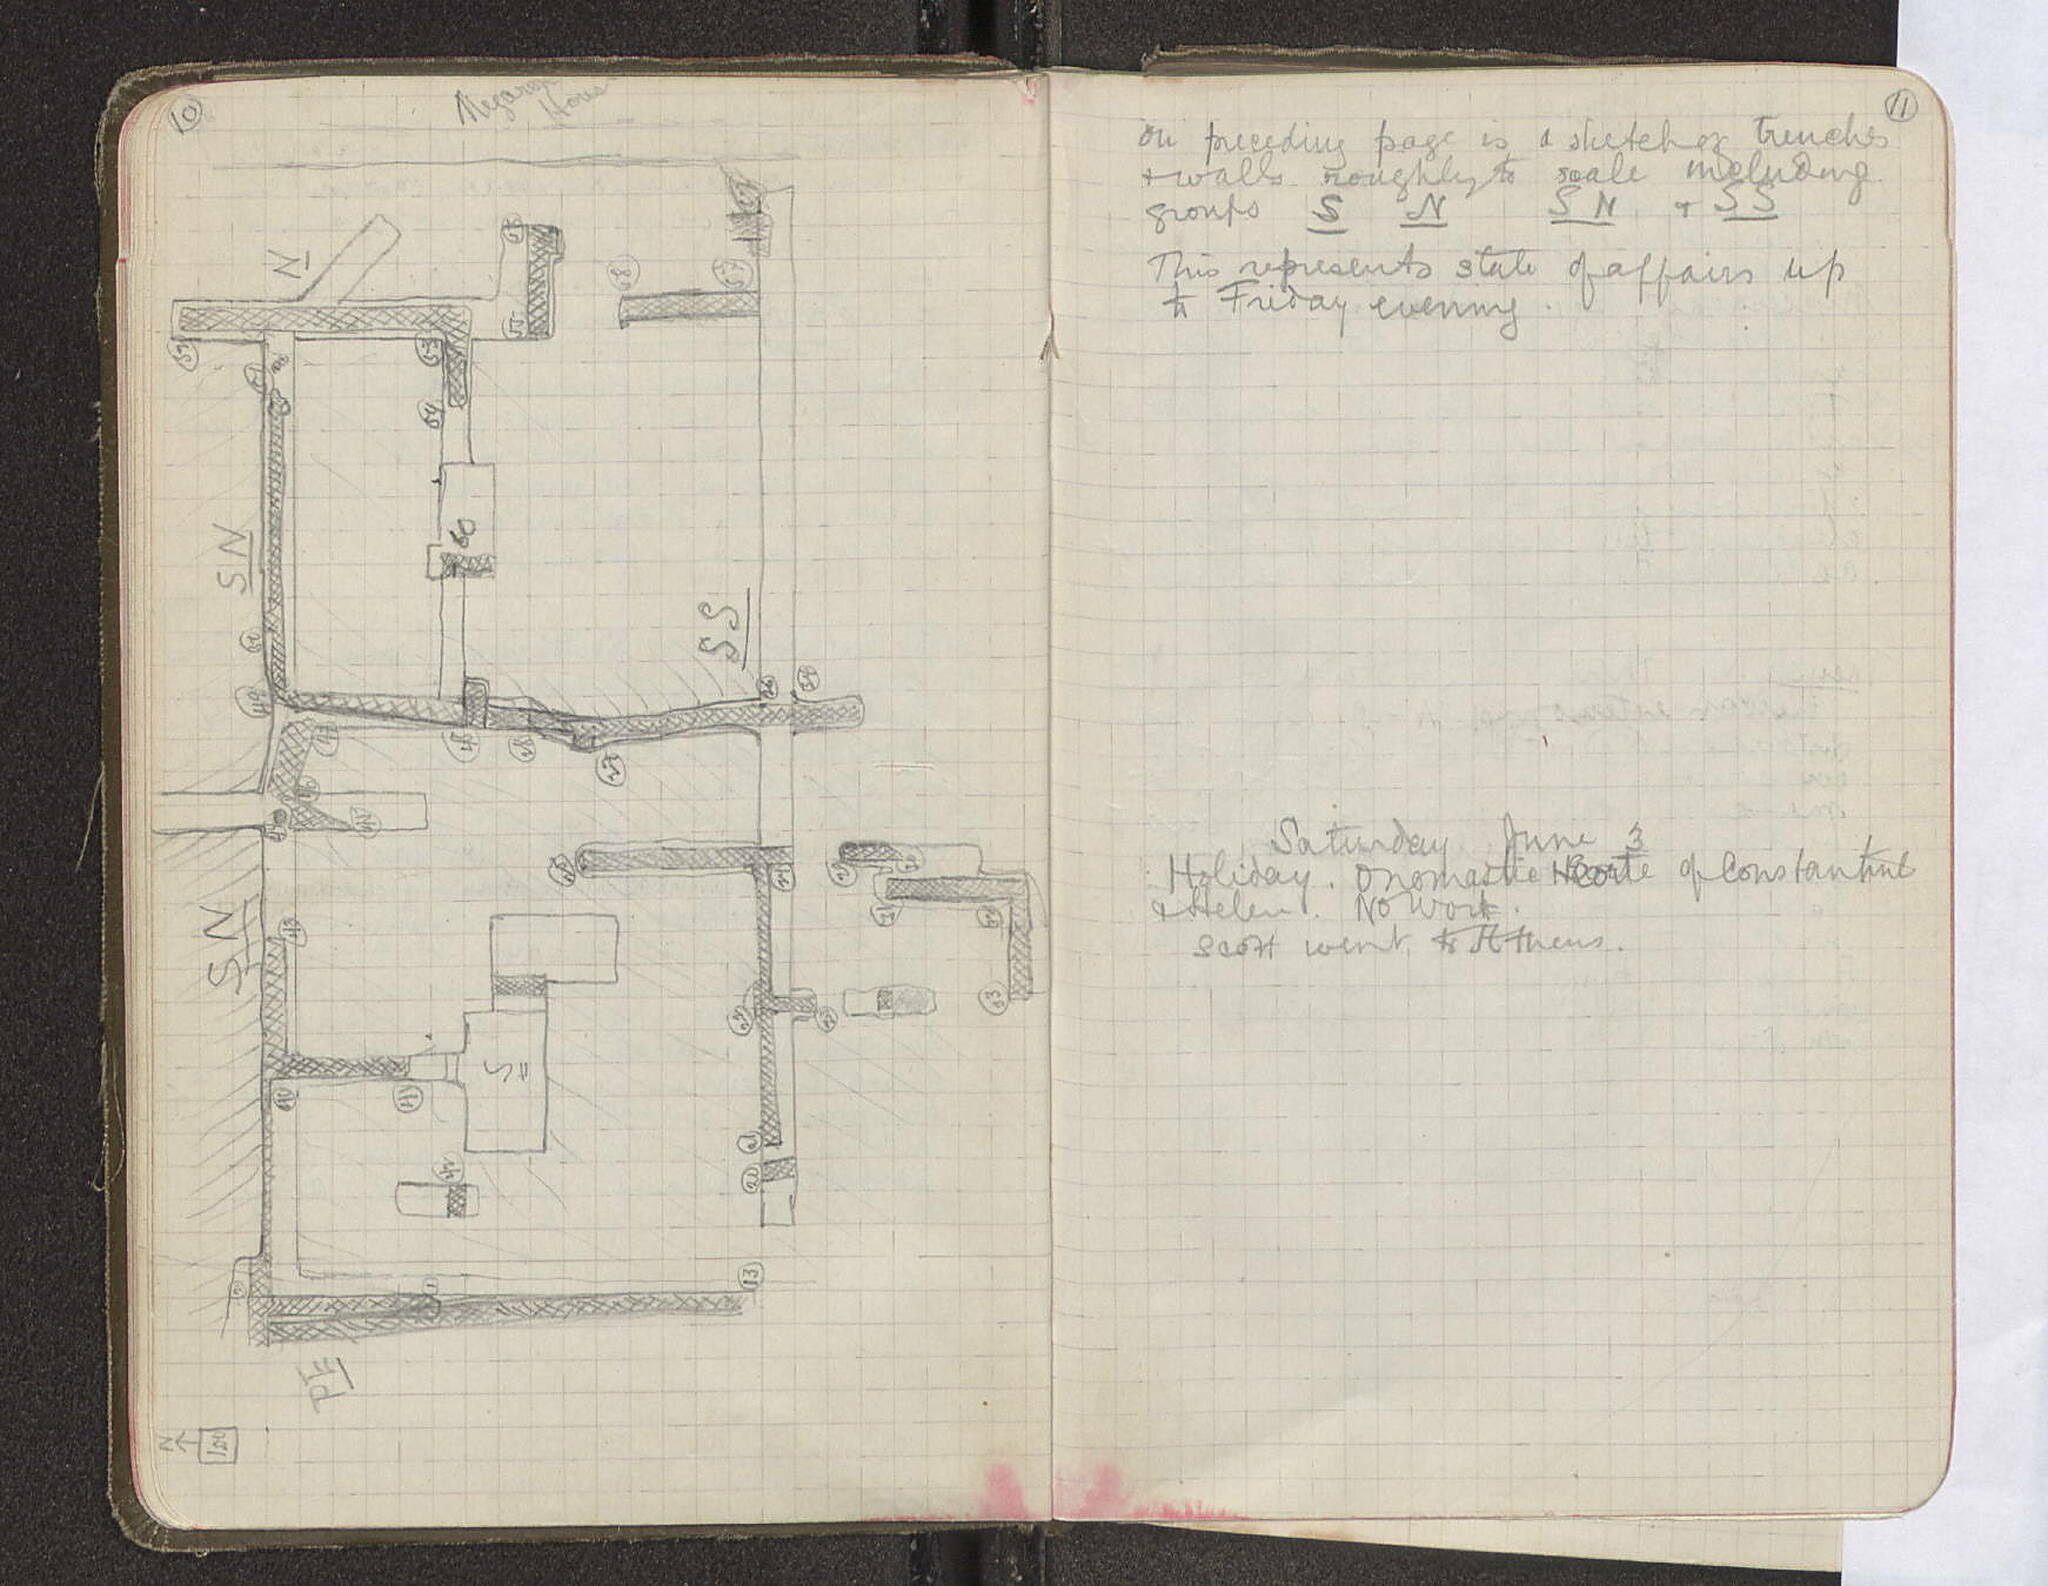 10
Megaron
N
SN
SS
SN
S
PE
N
100
55
58
57
53
54
60
48
28
27
26
40
41
42
13
11
On preceding page is a sketch of trenches
& walls roughly to scale including
groups S N SN & SS
This represents state of affairs up
to Friday evening.
Saturday June 3
Holiday. Onomastic of Constantine
& Helen. No work.
Scott went to Athens.